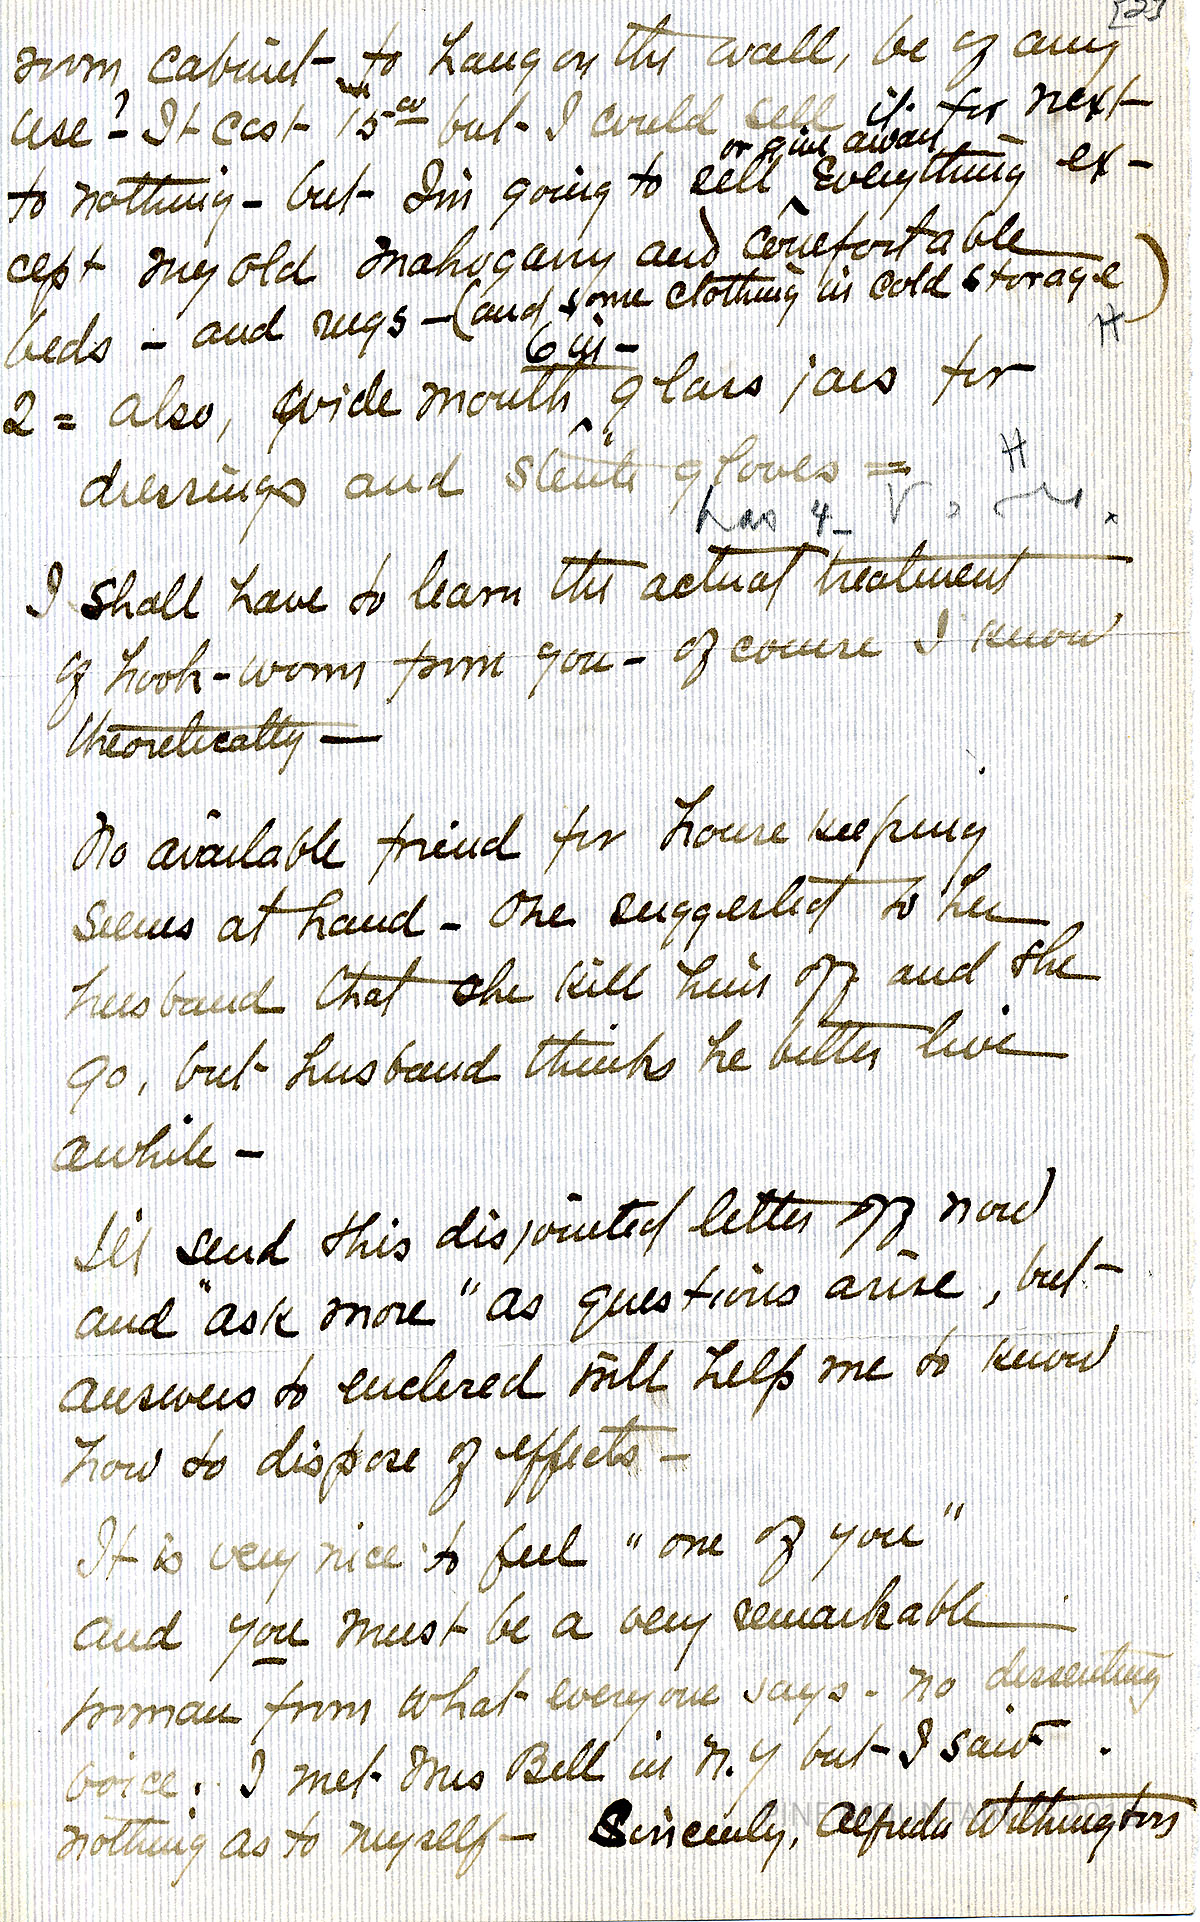 [2]
room cabinet - to hang on the wall, be of any
use? - It cost 15 00 but I could sell it for next
to nothing - but I'm going to sell or give away everything ex-
cept my old mahogany and comfortable
beds - and rugs - (and some clothing in cold storage)
H
2 = also, wide mouth 6 in - glass jars for
dressings and gloves =
H
has 4 -
I shall have to learn the actual treatment
of hook-worm from you - of course I know
theoretically -
No available friend for house keeping
seems at hand - One suggested to her
husband that she kill him off and she
go, but husband thinks he better live
awhile -
I'll send this disjointed letter off now
and "ask more" as questions arise, but
answers to enclosed will help me to know
how to dispose of effects -
It is very nice to feel "one of you"
and you must be a very remarkable
woman from what everyone says - no dissenting
voice. I met Miss Bell in N.Y but I said
nothing as to myself - Sincerely, Alfreda Withington